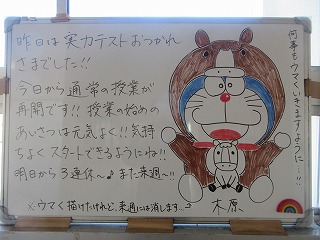 昨日は実力テストおつかれ
さまでした!!
今日から通常の授業が
再開です!! 授業の始めの
あいさつは元気よく!! 気持
ちよくスタートできるようにね!!
明日から3連休〜♪また来週〜!!
※ウマく描けたけれど、来週には消します...。
何事もウマくいきますように...!!
木原